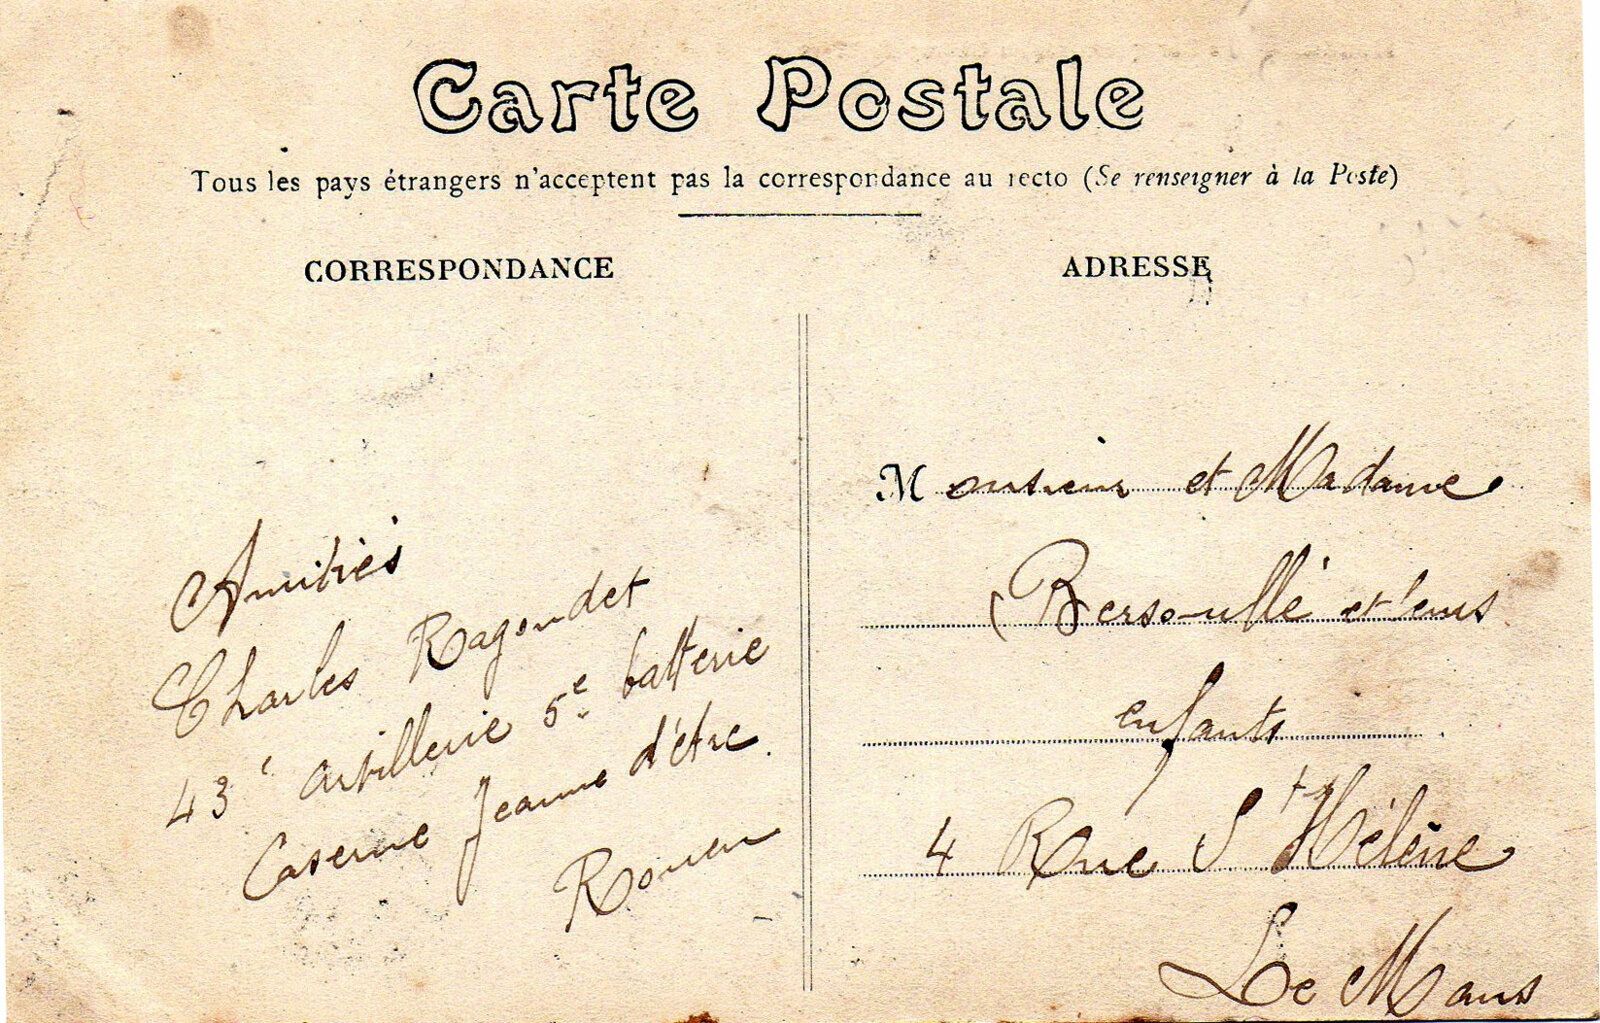 Carte Postale
Tous les pays étrangers n'acceptent pas la correspondance au recto (Se renseigner à la Poste)
CORRESPONDANCE
ADRESSE
Amitiés
Charles Ragoudet
43e artillerie 5e batterie
Caserne Jeanne d'étre.
Rouen
Monsieur et Madame
et leurs
enfants
4 Rue St Hélène
Le Mans